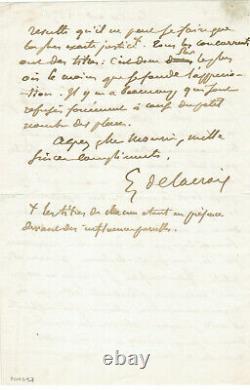 résulte qu'il ne peut se faire que
la plus exacte justice. Tous les concurrents
ont des titres: c'est donc dans le plus
ou le moins que se fonde l'apprécia-
tion. Il y en a beaucoup qui sont
refusés forcément à cause du petit
nombre des places.
Agréez, Monsieur, mille
sincères compliments.
E Delacroix
+ les titres de chacun étant en présence
devant des influences pareilles.